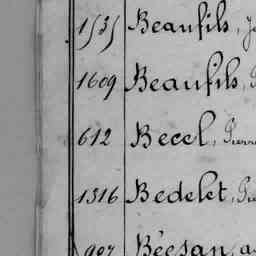 1535 Beaufils, J
1609 Beaufils, P
612 Becel, Pierre
1316 Bedelet, Pie
907 Béesan, a